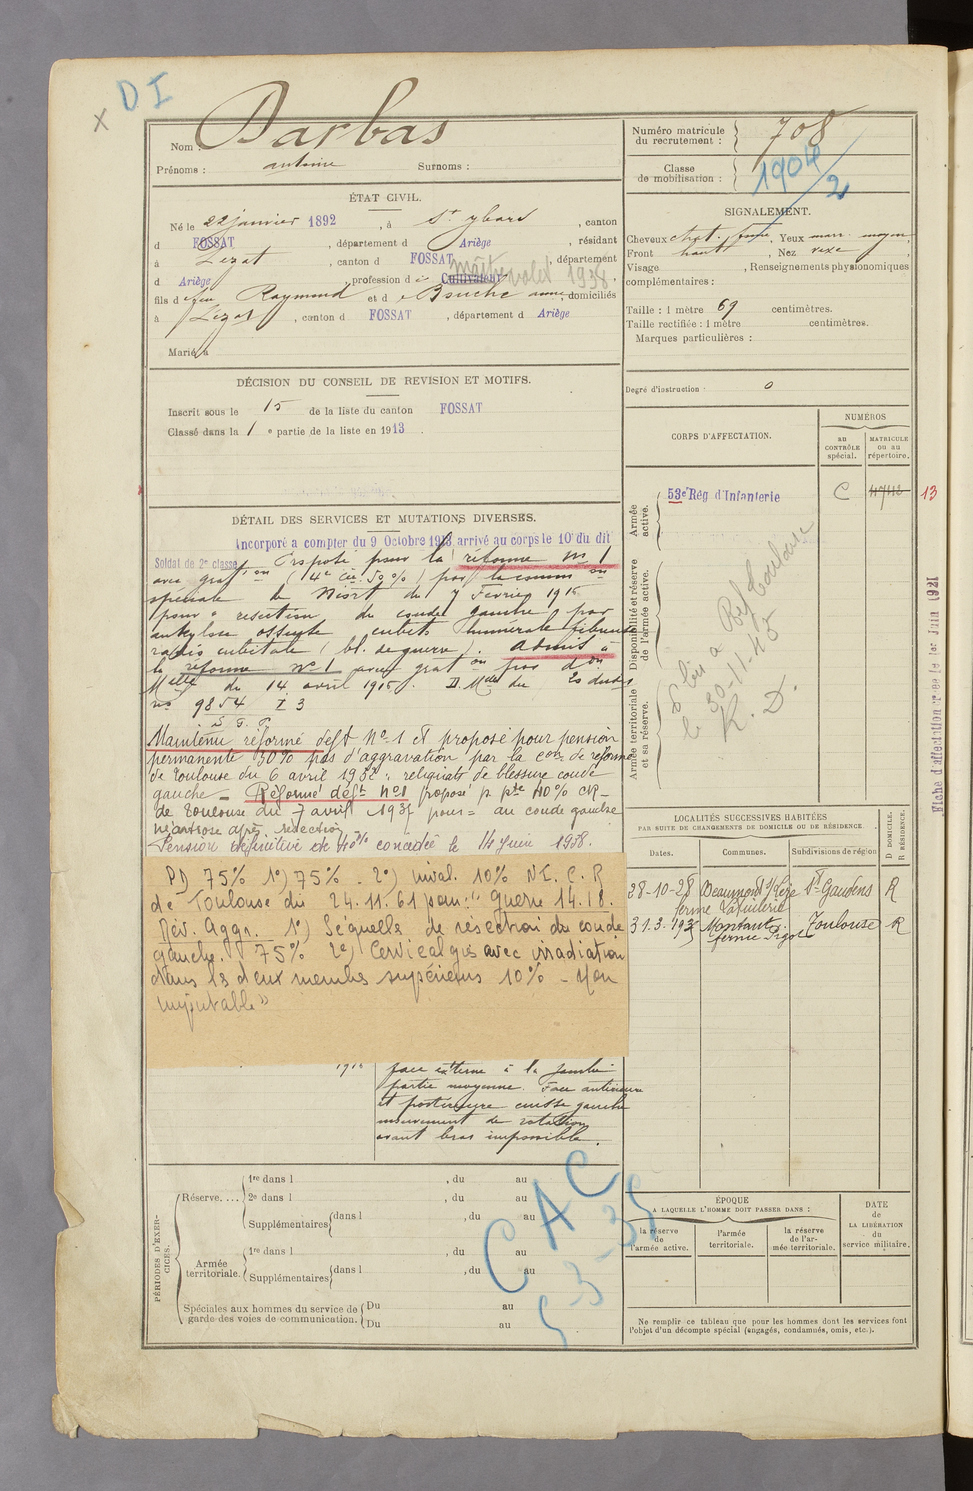 D I
x
Nom : Darbas
Prénoms : antoine Surnoms :
Numéro matricule du recrutement : 708
Classe de mobilisation : 1904/2
ÉTAT CIVIL.
Né le 22 janvier 1892, à St ybars, canton
d FOSSAT, département d Ariège, résidant
à Lézat, canton d FOSSAT, département
d Ariège, profession d Cultivateur maître valet 1938.
fils d feu Raymond et d Bouche anne, domiciliés
à Lézat, canton d FOSSAT, département d Ariège
Marié à
SIGNALEMENT.
Cheveux chat. foncé, Yeux marr. moyen,
Front haut, Nez vexe,
Visage , Renseignements physionomiques
complémentaires :
Taille : 1 mètre 69 centimètres.
Taille rectifiée : 1 mètre centimètres.
Marques particulières :
Degré d'instruction : 0
DÉCISION DU CONSEIL DE REVISION ET MOTIFS.
Inscrit sous le 15 de la liste du canton FOSSAT
Classé dans la 1 e partie de la liste en 1913.
CORPS D'AFFECTATION.
NUMÉROS
au CONTRÔLE spécial.
MATRICULE ou au répertoire.
Armée active.
53e Rég d'Infanterie C 4743
13
Disponibilité et réserve de l'armée active.
Armée territoriale et sa réserve.
le 30-11-45
K. D.
Fiche d'affectation créée le 1er Juin 1921
DÉTAIL DES SERVICES ET MUTATIONS DIVERSES.
Incorporé a compter du 9 Octobre 1913 arrivé au corps le 10 du dit
Soldat de 2e classe Proposé pour la réforme no 1
avec grat on (4e cie. 50%) par la comm on
spéciale de Niort du 7 Février 1916
pour " résection du coude gauche par
ankylose osseuse cubito humérale fibreuse
radio cubitale (bl. de guerre). admis à
la réforme no 1 avec grat on par d on
Melle du 14 avril 1916. D. Mlle du 20 dudit
no 9854 I 3
S. G. P.
Maintenu réformé deft No 1 et proposé pour pension
permanente 30% pas d'aggravation par la con de réforme
de Toulouse du 6 avril 1932 : reliquats de blessure coude
gauche - Réformé deft no 1 proposé p. pte 40% CR-
de Toulouse du 7 avril 1937 pour = au coude gauche
néartrose après résection
Pension définitive de 40% concédée le 14 Juin 1938.
PD 75% 1°) 75% - 2°) inval. 10% N.I. C. R
de Toulouse du 24.11.61 pour : " Guerre 14.18.
Rév. Aggr. 1°) Séquelles de résection du coude
gauche. 75% 2°) Cervicalgies avec irradiation
dans les deux membres supérieurs 10% - Non
imputable"
face externe à la jambe
partie moyenne. Face antérieure
et postérieure cuisse gauche
mouvement de rotation
avant bras impossible.
LOCALITÉS SUCCESSIVES HABITÉES
PAR SUITE DE CHANGEMENTS DE DOMICILE OU DE RÉSIDENCE.
Dates. Communes. Subdivisions de région. D DOMICILE. R RÉSIDENCE.
28-10-28 Beaumont s/Lèze St Gaudens R
ferme Latuilerie
31.3.193 Montaut Toulouse R
ferme
C A C
PÉRIODES D'EXERCICES.
Réserve....
1re dans l , du au
2e dans l , du au
Supplémentaires dans l , du au
Armée territoriale.
1re dans l , du au
Supplémentaires dans l , du au
Spéciales aux hommes du service de garde des voies de communication.
Du au
Du au
ÉPOQUE
A LAQUELLE L'HOMME DOIT PASSER DANS :
la réserve de l'armée active.
l'armée territoriale.
la réserve de l'armée territoriale.
DATE de LA LIBÉRATION du service militaire.
Ne remplir ce tableau que pour les hommes dont les services font
l'objet d'un décompte spécial (engagés, condamnés, omis, etc.).